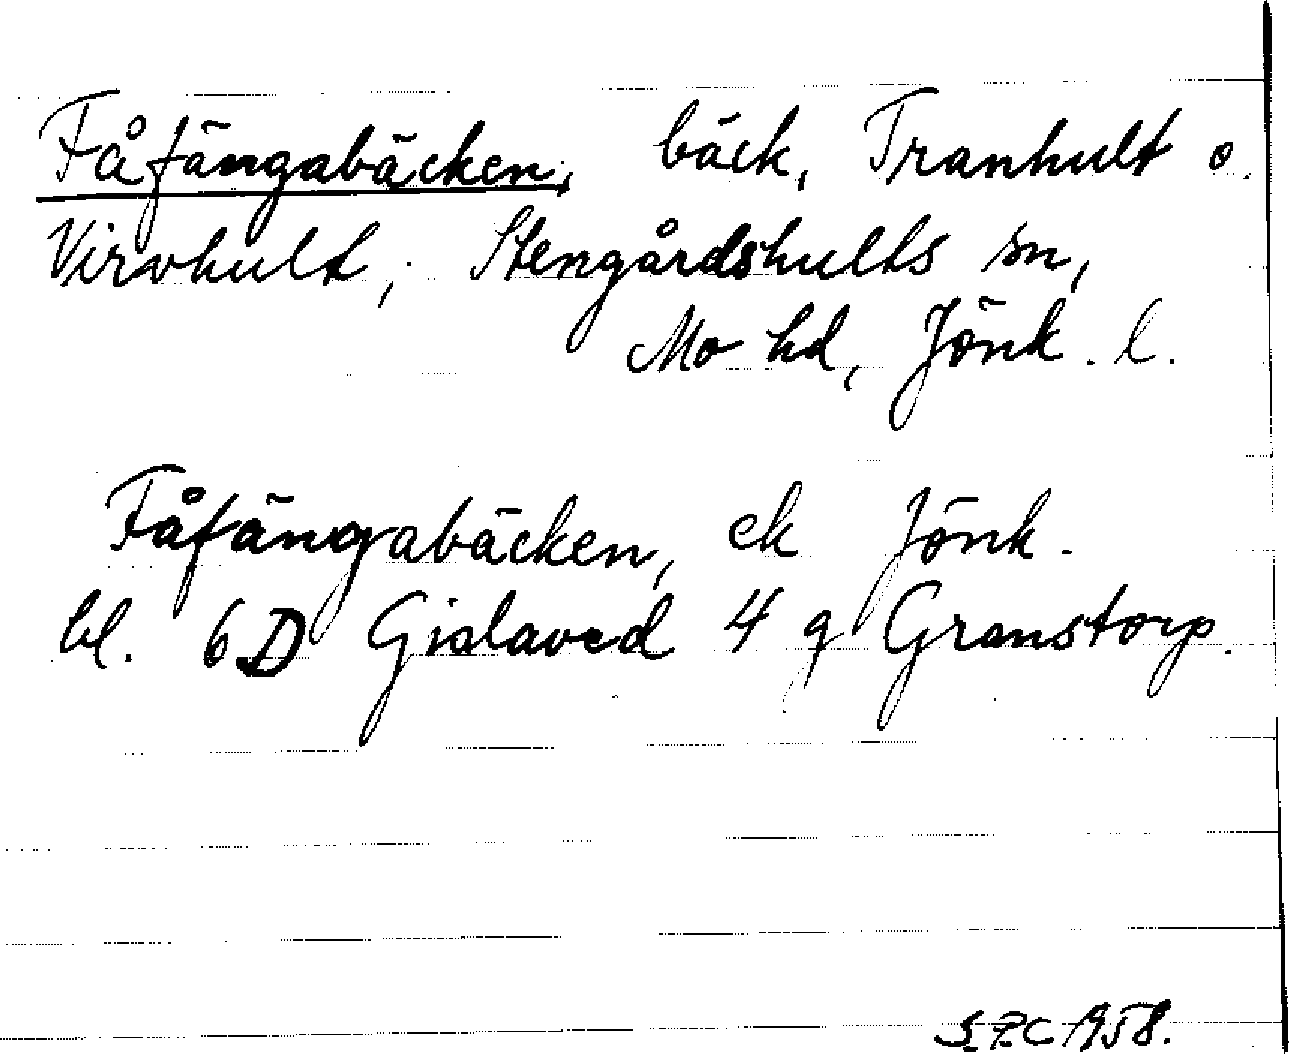 Fåfängabäcken, bäck, Tranhult o.
Virvhult, Stengårdshults sn,
Mo hd, Jönk. l.
Fåfängabäcken, ek Jönk.
bl. 6D Gislaved 4 g Granstorp.
1958.